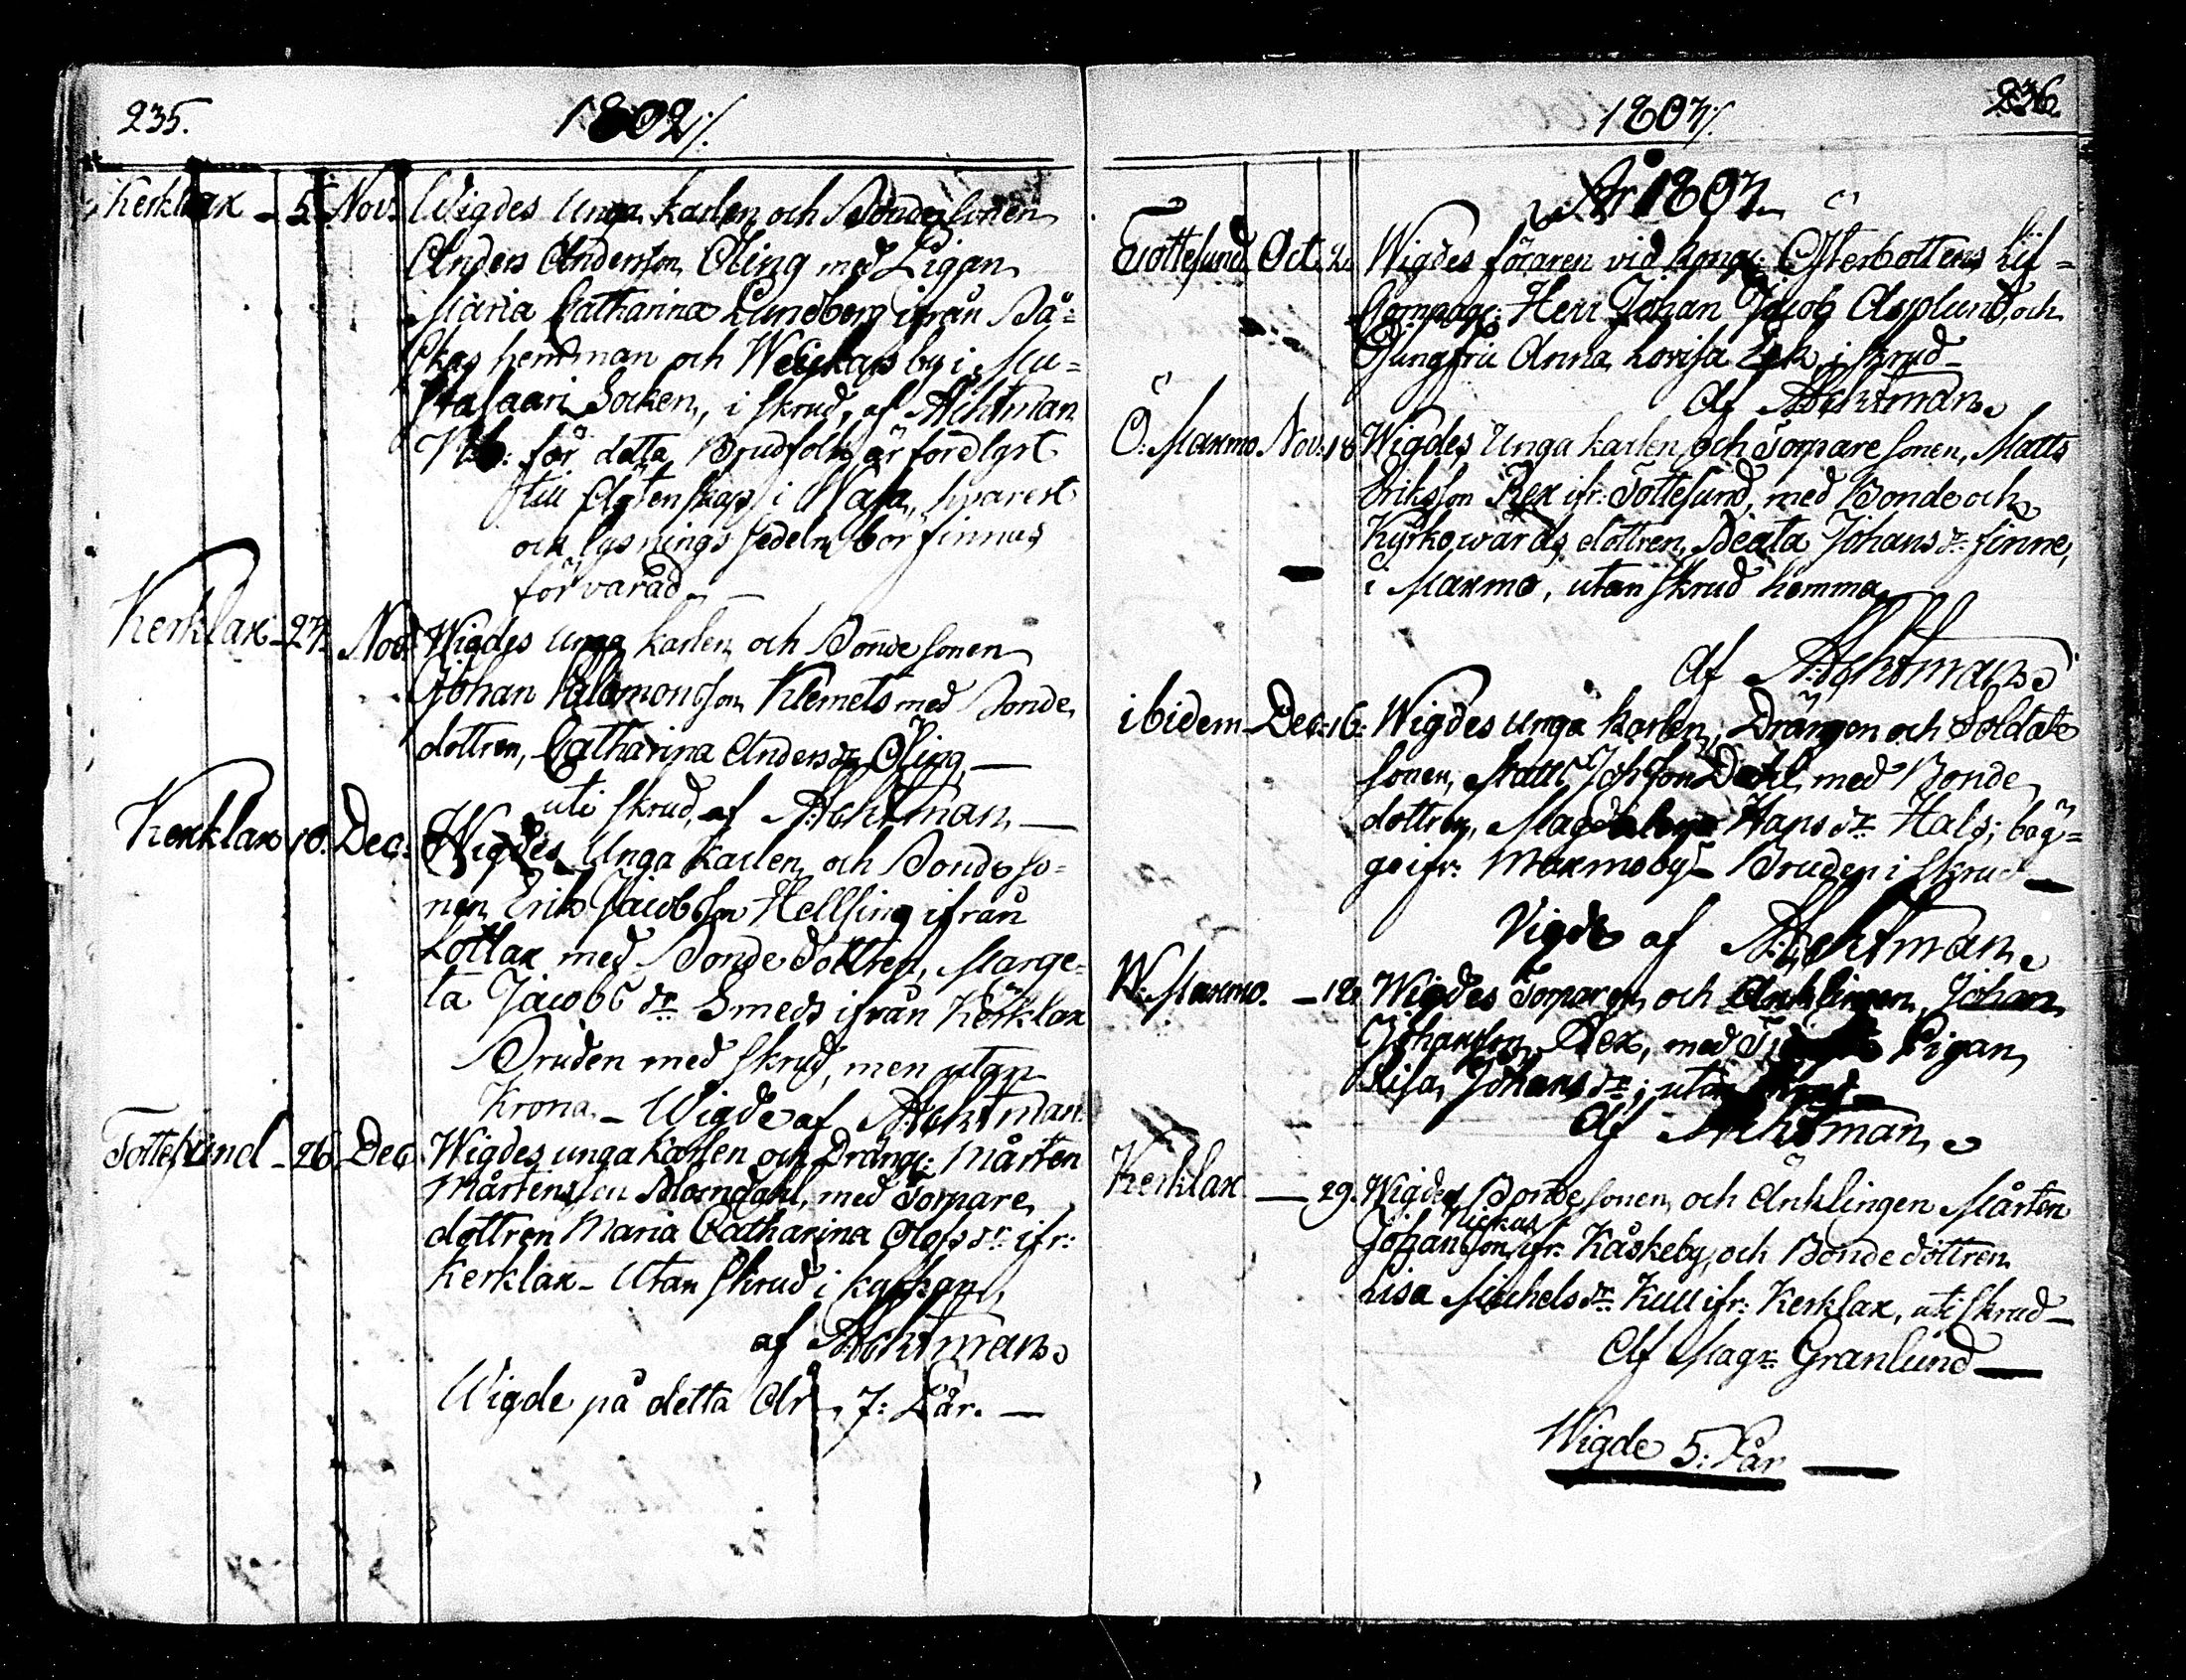 235.
1802/.
Kerklax - 5. Nov. Wigdes Unga Karlen och Bondesonen
Anders Andersson Öling med Pigan
Maria Catharina Lundberg ifrån Bå=
skas hemman och Weikars by i Mu=
stasaari Socken, i skrud, af A:Achtman
NB: för detta Brudfolk är fordlyst
till Ägtenskap i Wasa, hvarest
ock lysnings sedeln bör finnus
förvarad.
Kerklax - 27. Nov. Wigdes unga Karlen och Bonde sonen
Johan Salomonsson Klemets med Bonde
dottren, Catharina Anders dr Öling, —
uti skrud, af A:Achtman, —
Kerklax 10. Dec. Wigdes Unga Karlen och Bonde so=
nen Erik Jacobsson Hellsing ifrån
Lotlax med Bonde dottren, Marge=
ta Jacobs dr Smeds ifrån Kerklax
Bruden med skrud, men utan
Krona. - Wigde af A:Achtman.
Tottesund - 26. Dec. Wigdes unga Karlen och Dräng: Mårten
Mårtensson Blomdahl, med Torpare
dottren Maria Catharina Olofs dr. ifr:
Kerklax - Utan skrud i kyrkan,
af A:Achtman.
Wigde på detta År, 7: Pår. —
236.
1807/.
År 1807.
Tottesund Oct. 2. Wigdes föraren vid Kongl: Österbottens Lif=
Compagn: Herr Johan Jacob Asplund, och
Jungfru Anna Lovisa Eek, i skrud -
Af A:Achtman.
Ö: Maxmo. Nov: 18 Wigdes Unga Karlen och Torpare sonen, Matts
Eriksson Rex ifr: Tottesund, med Bonde och
Kyrkowärds dottren, Beata Johans dr finne,
i Maxmo, utan skrud hemma,
Af A:Achtman.
ibidem - Dec: 16: Wigdes unga Karlen, Drängen och Soldate
sonen, Matts Johsson Dahl, med Bonde
dottren, Magdalena Hans dr Hals; bäg=
ge ifr: Maxmoby - Bruden i skrud —
Vigde af A:Achtman.
W: Maxmo. - 18. Wigdes Torparen och Änklingen, Johan
Johansson Rex, med Pigan,
Lisa, Johans dr; utan skrud -
Af A:Achtman.
Kerklax — 29. Wigdes Bonde sonen, och Änklingen Mårten
Nickus
Johansson, ifr: Kåskeby, och Bonde dottren
Lisa Michels dr Kull ifr: Kerklax, uti skrud —
Af Magr. Granlund —
Wigde 5: Pår —